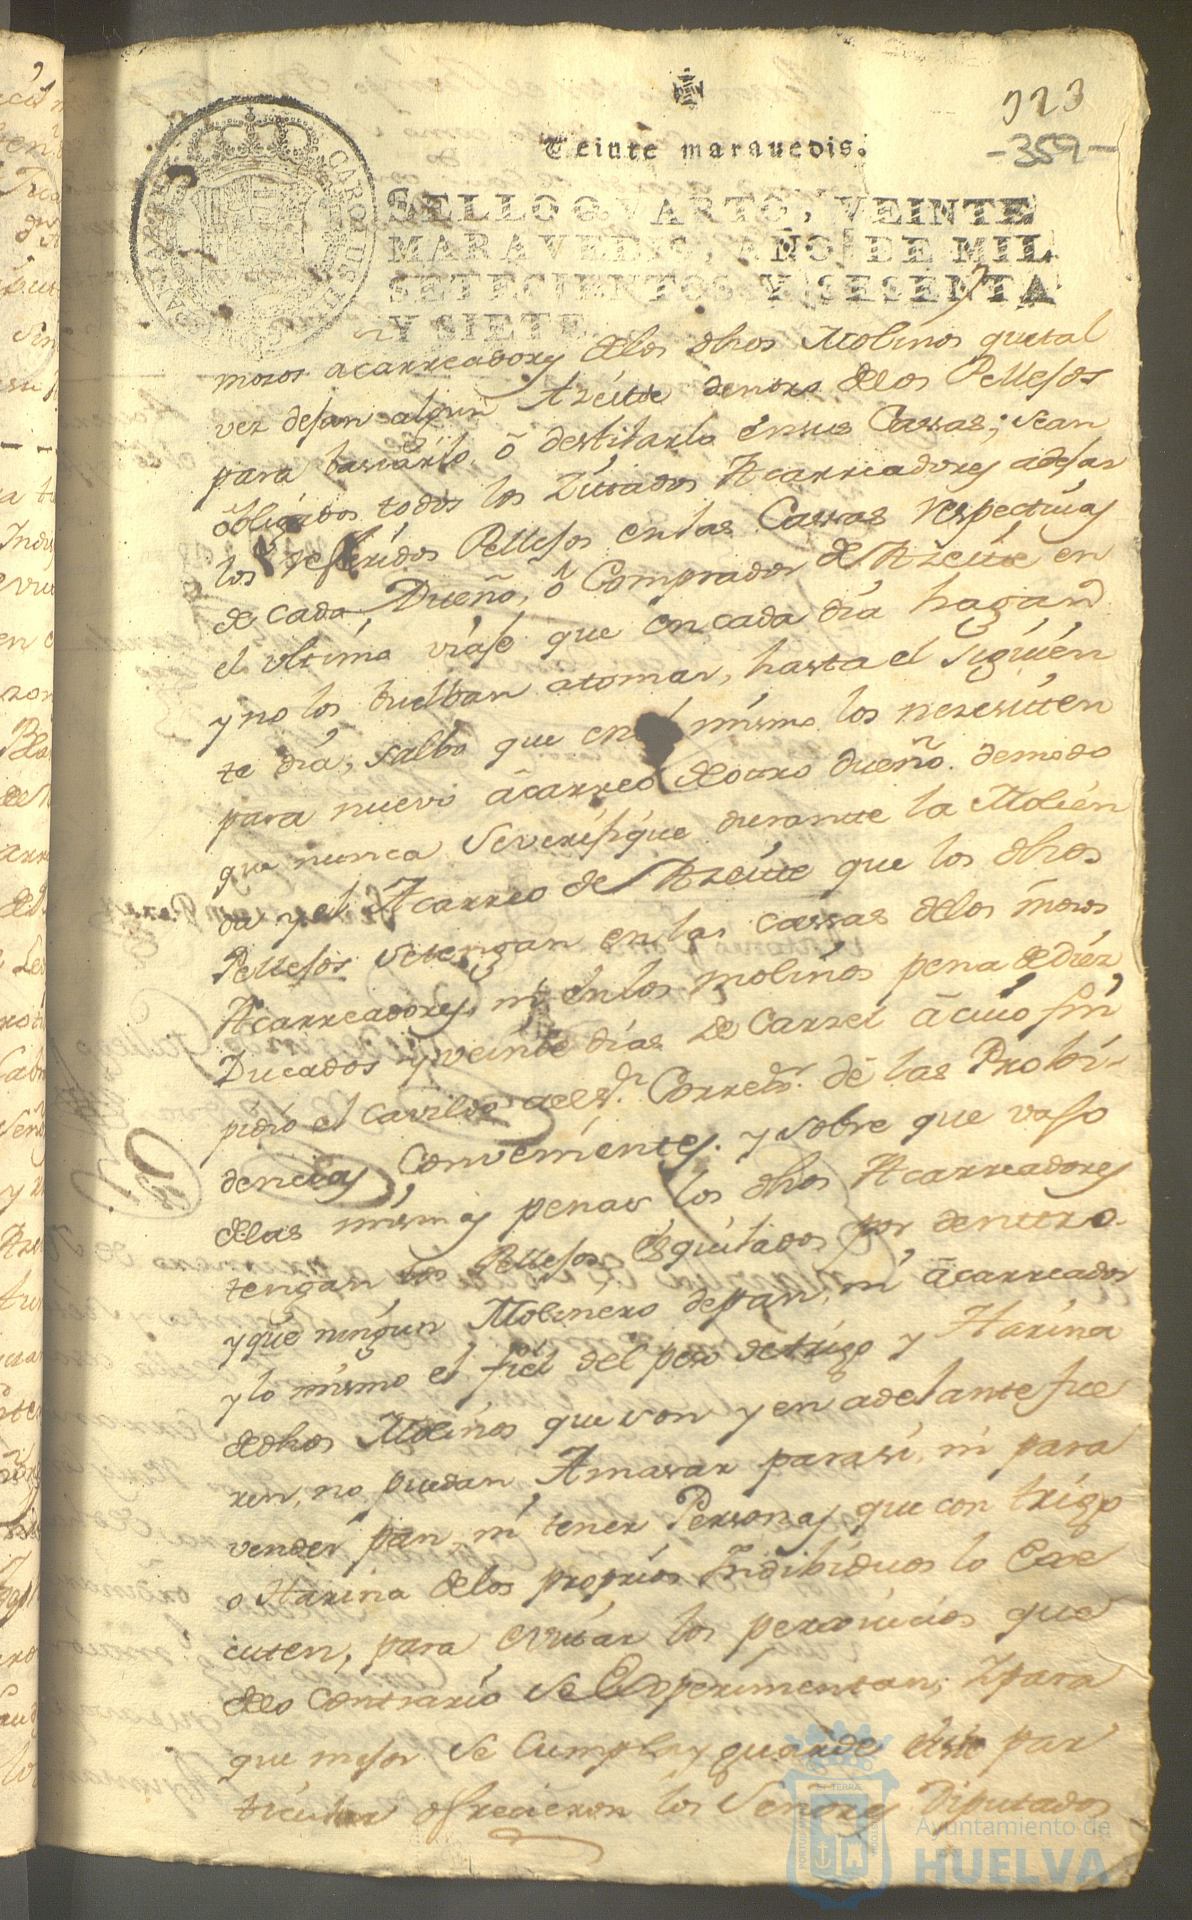 323
-359-
Veinte marauedis.
SELLO QVARTO, VEINTE
MARAVEDIS, AÑO DE MIL
SETECIENTOS Y SESENTA
Y SIETE
CAROLUS
mosos acarreadores delos dhos Molinos que tal
vez dejan algun Azeite dentro delos Pellejos
para basiarlo ó destilarlo en sus Cassas; sean
obligados todos los Zitados Acarreadores adejar
los referidos Pellejos en las Cassas respectivas
de cada Dueño, ó Comprador de Azeite en
el vltimo viaje que en cada dia hagan
y no los buelban atomar, hasta el siguien
te dia; salbo que en el mismo los nezesiten
para nuevo acarreo de otro dueño. demodo
que nunca severifique durante la Molien
da y el Acarreo de Azeite que los dhos
Pellejos setengan en las cassas delos mosos
Acarreadores, ni en los molinos pena de diez
Ducados y veinte dias de Carzel â cuio fin
pidio el Cavildo al Sr. Corredr. de las Probi-
dencias Convenientes. y sobre que vajo
delas mismas penas los dhos Acarreadores
tengan los Pellejos esquilados por denttro.
y que ningun Molinero depan, ni acarreador
y lo mismo el fiel del peso de trigo y Harina
de dhos Molinos que son y en adelante fue
ren, no puedan Amasar parasi, ni para
vender pan, ni tener Personas que con trigo
o Harina delos propios Indibiduos lo Exe
cuten, para evitar los perxuicios que
delo contrario se Experimentan; Ypara
que mejor se Cumpla y guarde este par
ticular ofrecieron los Señores Diputados
Ayuntamiento de
HUELVA